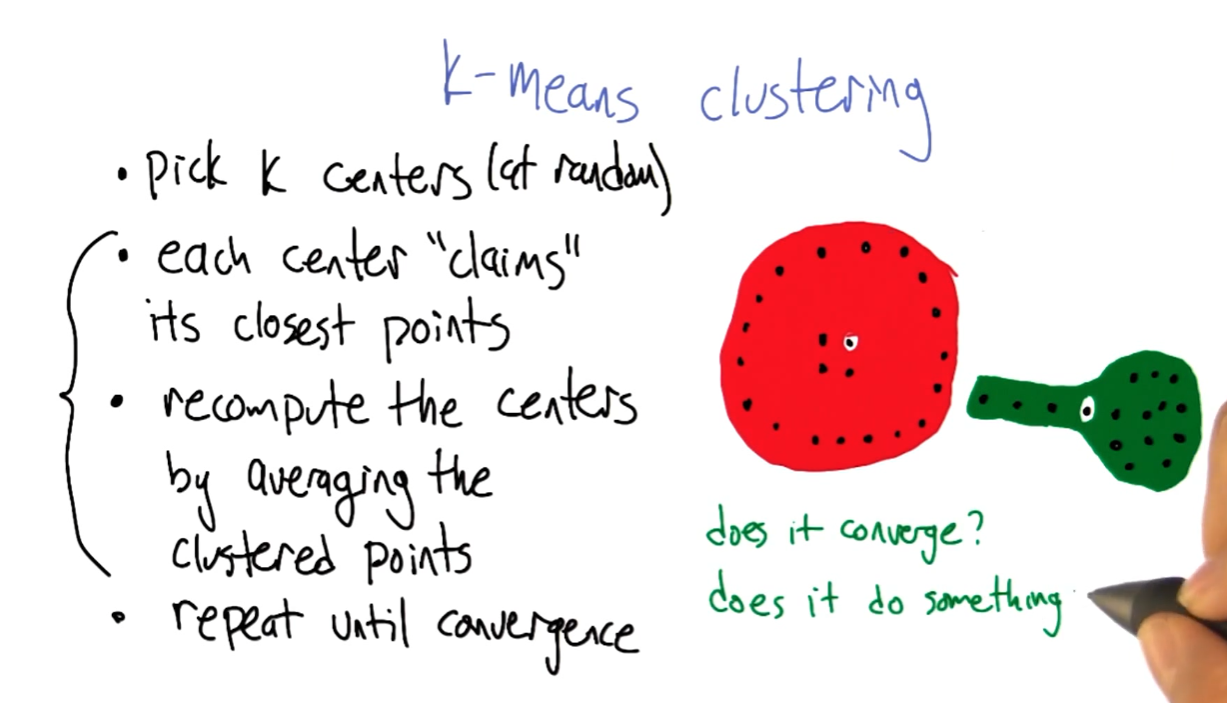 k-means clustering
• pick K centers (at random)
• each center "claims"
its closest points
• recompute the centers
by averaging the
clustered points
• repeat until convergence
does it converge?
does it do something